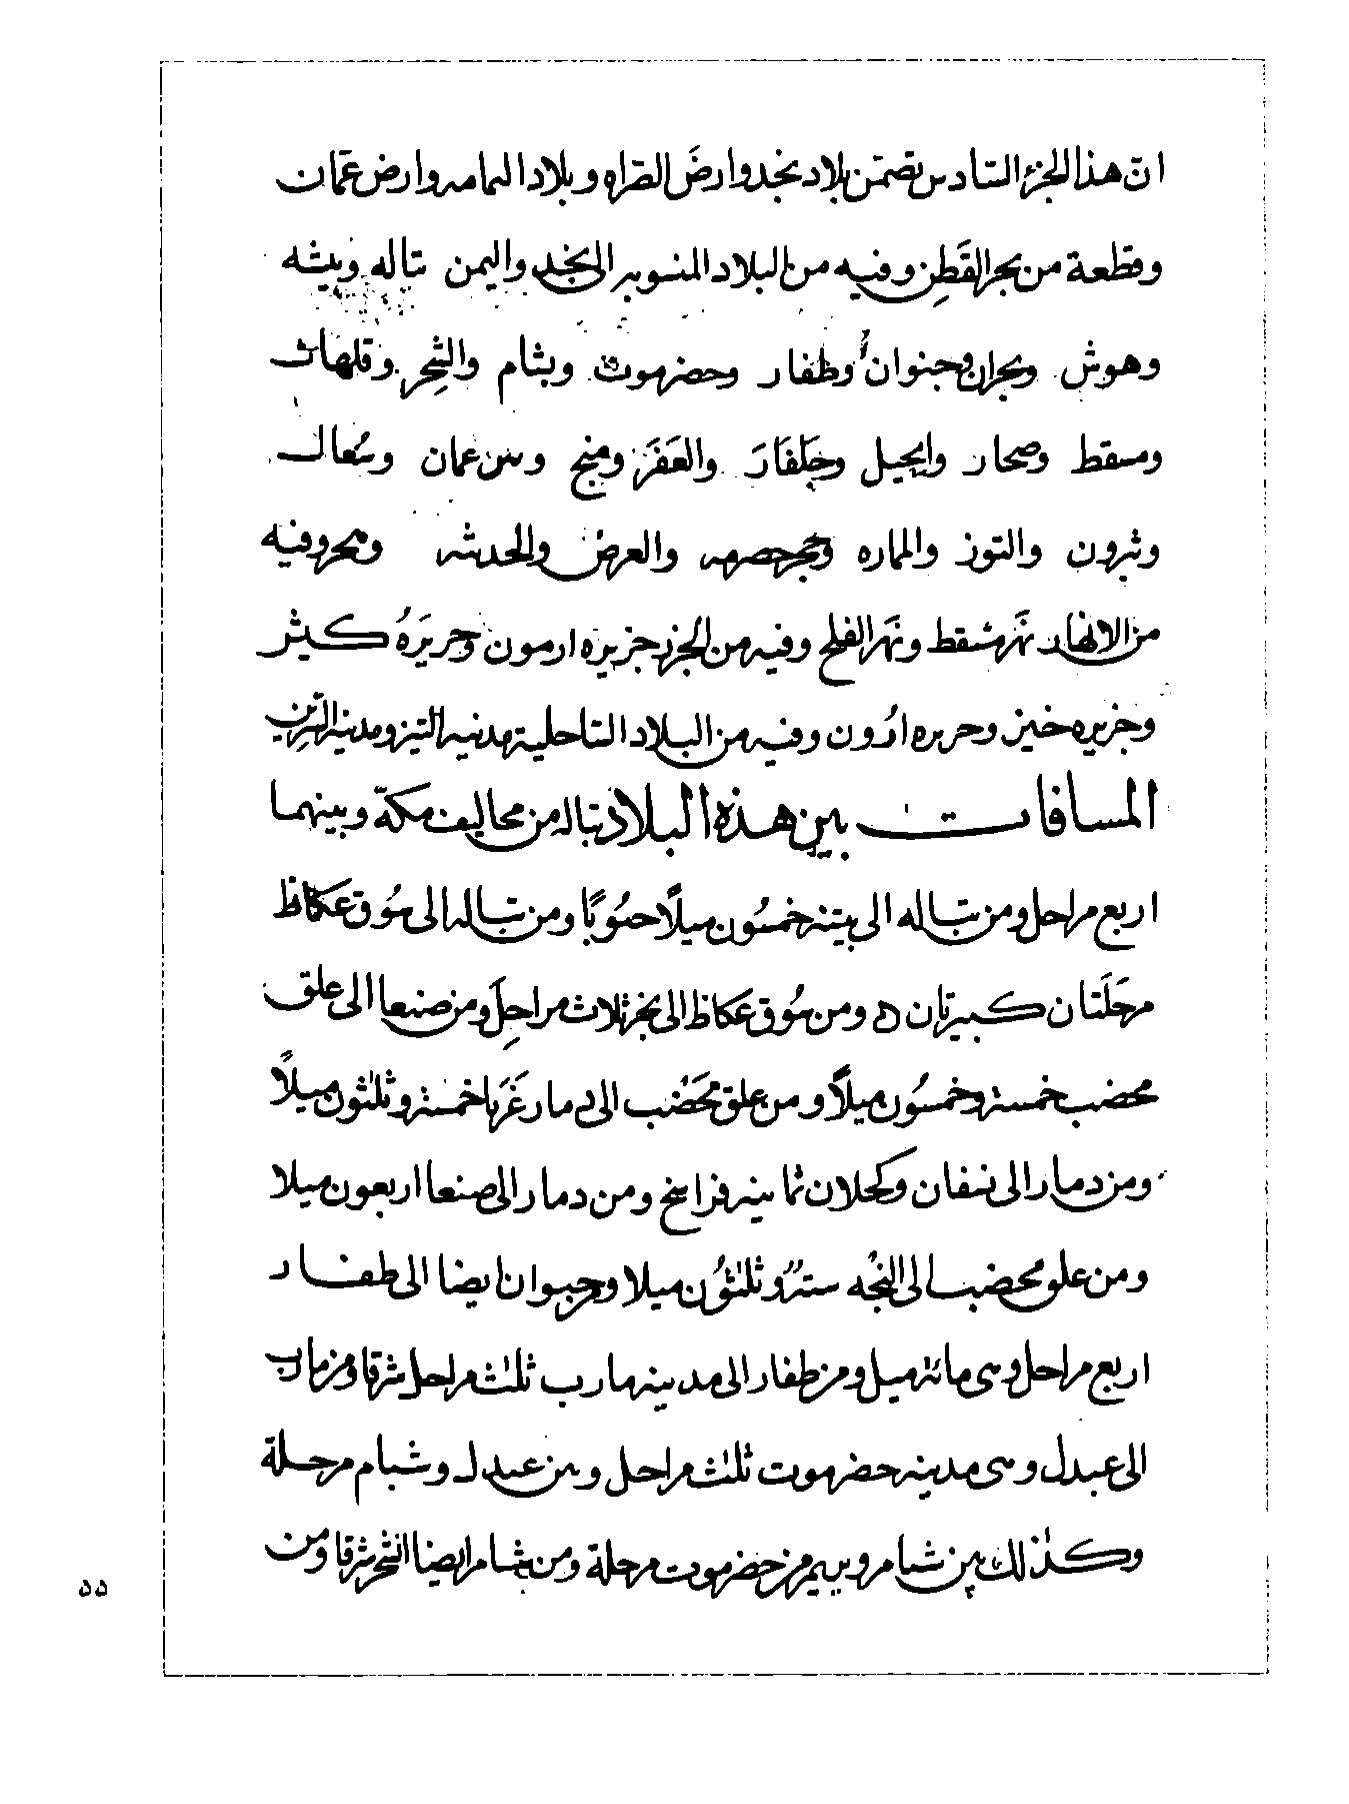 ان هذا الجزء السادس تضمن بلاد نجد وارض السراه وبلاد اليمامه وارض عمان
وقطعة من بحر القطن وفيه من البلاد المنسوبه الى نجد واليمن تباله وبيشه
وهوش ونجران وجنوان وظفار وحضرموت وبشام والشحر وقلهات
ومسقط وصحار والجيل وجلفار والعفر ومنج وسر عمان وسعال
وثرون والتوز والماره وحجر حصرمه والعرض والحدثه ومحروفيه
من الانهار نهر مسقط ونهر الفلج وفيه من الجزر جزيره ارمون وجزيره كيش
وجزيره خيز وجزيره ارون وفيه من البلاد الساحلية مدينه التيز ومدينه
المسافات بين هذه البلاد تباله من مخاليف مكة وبينهما
اربع مراحل ومن تباله الى بيشه خمسون ميلا جنوبا ومن تباله الى سوق عكاظ
مرحلتان كبيرتان ه ومن سوق عكاظ الى نجر ثلاث مراحل ومن صنعا الى علق
محضب خمسة وخمسون ميلا ومن علق محضب الى ذمار غربا خمسة وثلثون ميلا
ومن دمار الى نسفان وكحلان ثمانيه فراسخ ومن دمار الى صنعا اربعون ميلا
ومن علو محضب الى النجه ستة وثلثون ميلا وجبوان ايضا الى طفار
اربع مراحل وهى مائة ميل ومن ظفار الى مدينه مارب ثلث مراحل شرقا ومن مارب
الى عبدل وهى مدينه حضرموت ثلث مراحل وبين عبدل وشبام مرحلة
وكذلك بين شبام وتريم من حضرموت مرحلة ومن شبام ايضا الشحر شرقا ومن
٥٥